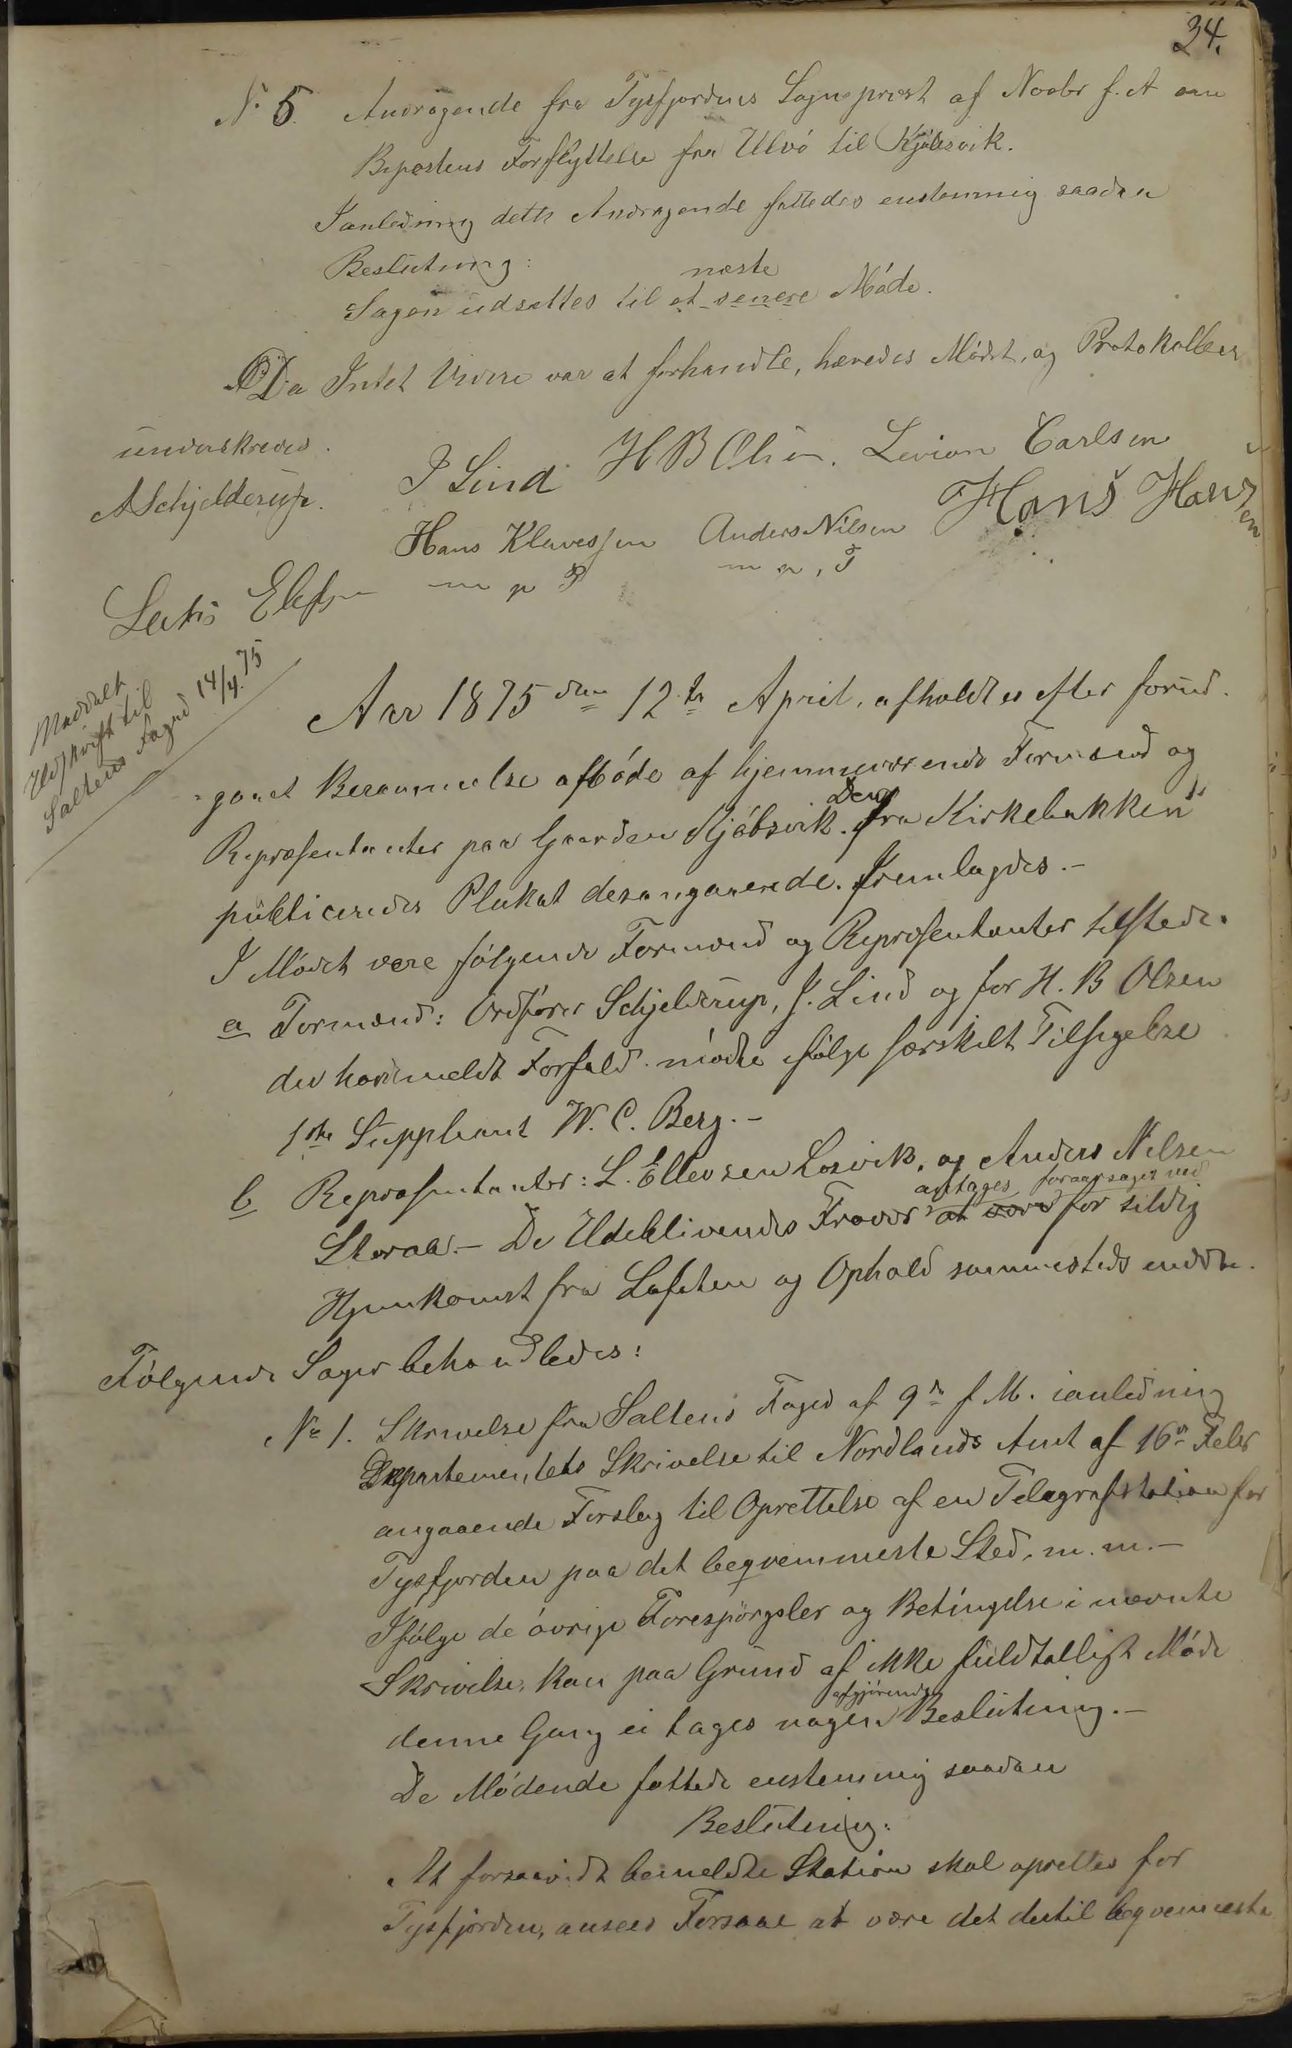 34.
N. 5. Andragende fra Tysfjordens Sogneprest af Novbr f. A om
Bipostens Forflyttelse fra Ulvø til Kjøbsvik.
Ianledning dette Andragende fattedes enstemmig saadan
Beslutning:
næste
Sagen udsættes til et senere Møde.
Da Intet Videre var at forhandle, hævedes Mødet, og Protokollen
underskreves.
A Schjelderup. J Lind H B Olsen. Levion Carlsen
Hans Klavessen Anders Nilsen Hans Hansen
m p P m p, P
Lars Elefsen
Meddelt
Udskrift til
Saltens Foged 14/4. 75
Aar 1875 den 12te April, afholdtes efter forud-
gaaet Berammelse Møde af hjemmeværende Formænd og
Repræsentanter paa Gaarden Kjøbsvik. Den fra Kirkebakken
publicerede Plakat desangaaende fremlagdes.-
I Mødet vare følgende Formænd og Repræsentanter tilstede.
a Formænd: Ordfører Schjelderup, J. Lind og for H. B Olsen
der har meldt Forfald mødte ifølge særskilt Tilsigelse
1ste Suppleant W. C. Berg.-
b Repræsentanter: L. Ellevsen Losvik, og Anders Nilsen
antages foraarsaget ved
Storaa.- De Udeblivendes Fravær at være for sildig
Hjemkomst fra Lofoten og Ophold sammesteds endda.
Følgende Sager behandledes:
No 1. Skrivelse fra Saltens Foged af 9de f. M. ianledning
Departementets Skrivelse til Nordlands Amt af 16de Febr
angaaende Forslag til Oprettelse af en Telegrafstation for
Tysfjorden paa det beqvemmeste Sted, m. m.-
Ifølge de øvrige Forespørgsler og Betingelse i nævnte
Skrivelse, kan paa Grund af ikke fuldtalligt Møde
afgjørende
denne Gang ei tages nogen Beslutning.-
De Mødende fattede enstemmig saadan
Beslutning:
At forsaavidt bemeldte Station skal oprettes for
Tysfjorden, ansees Forsaae at være det dertil beqvemmeste